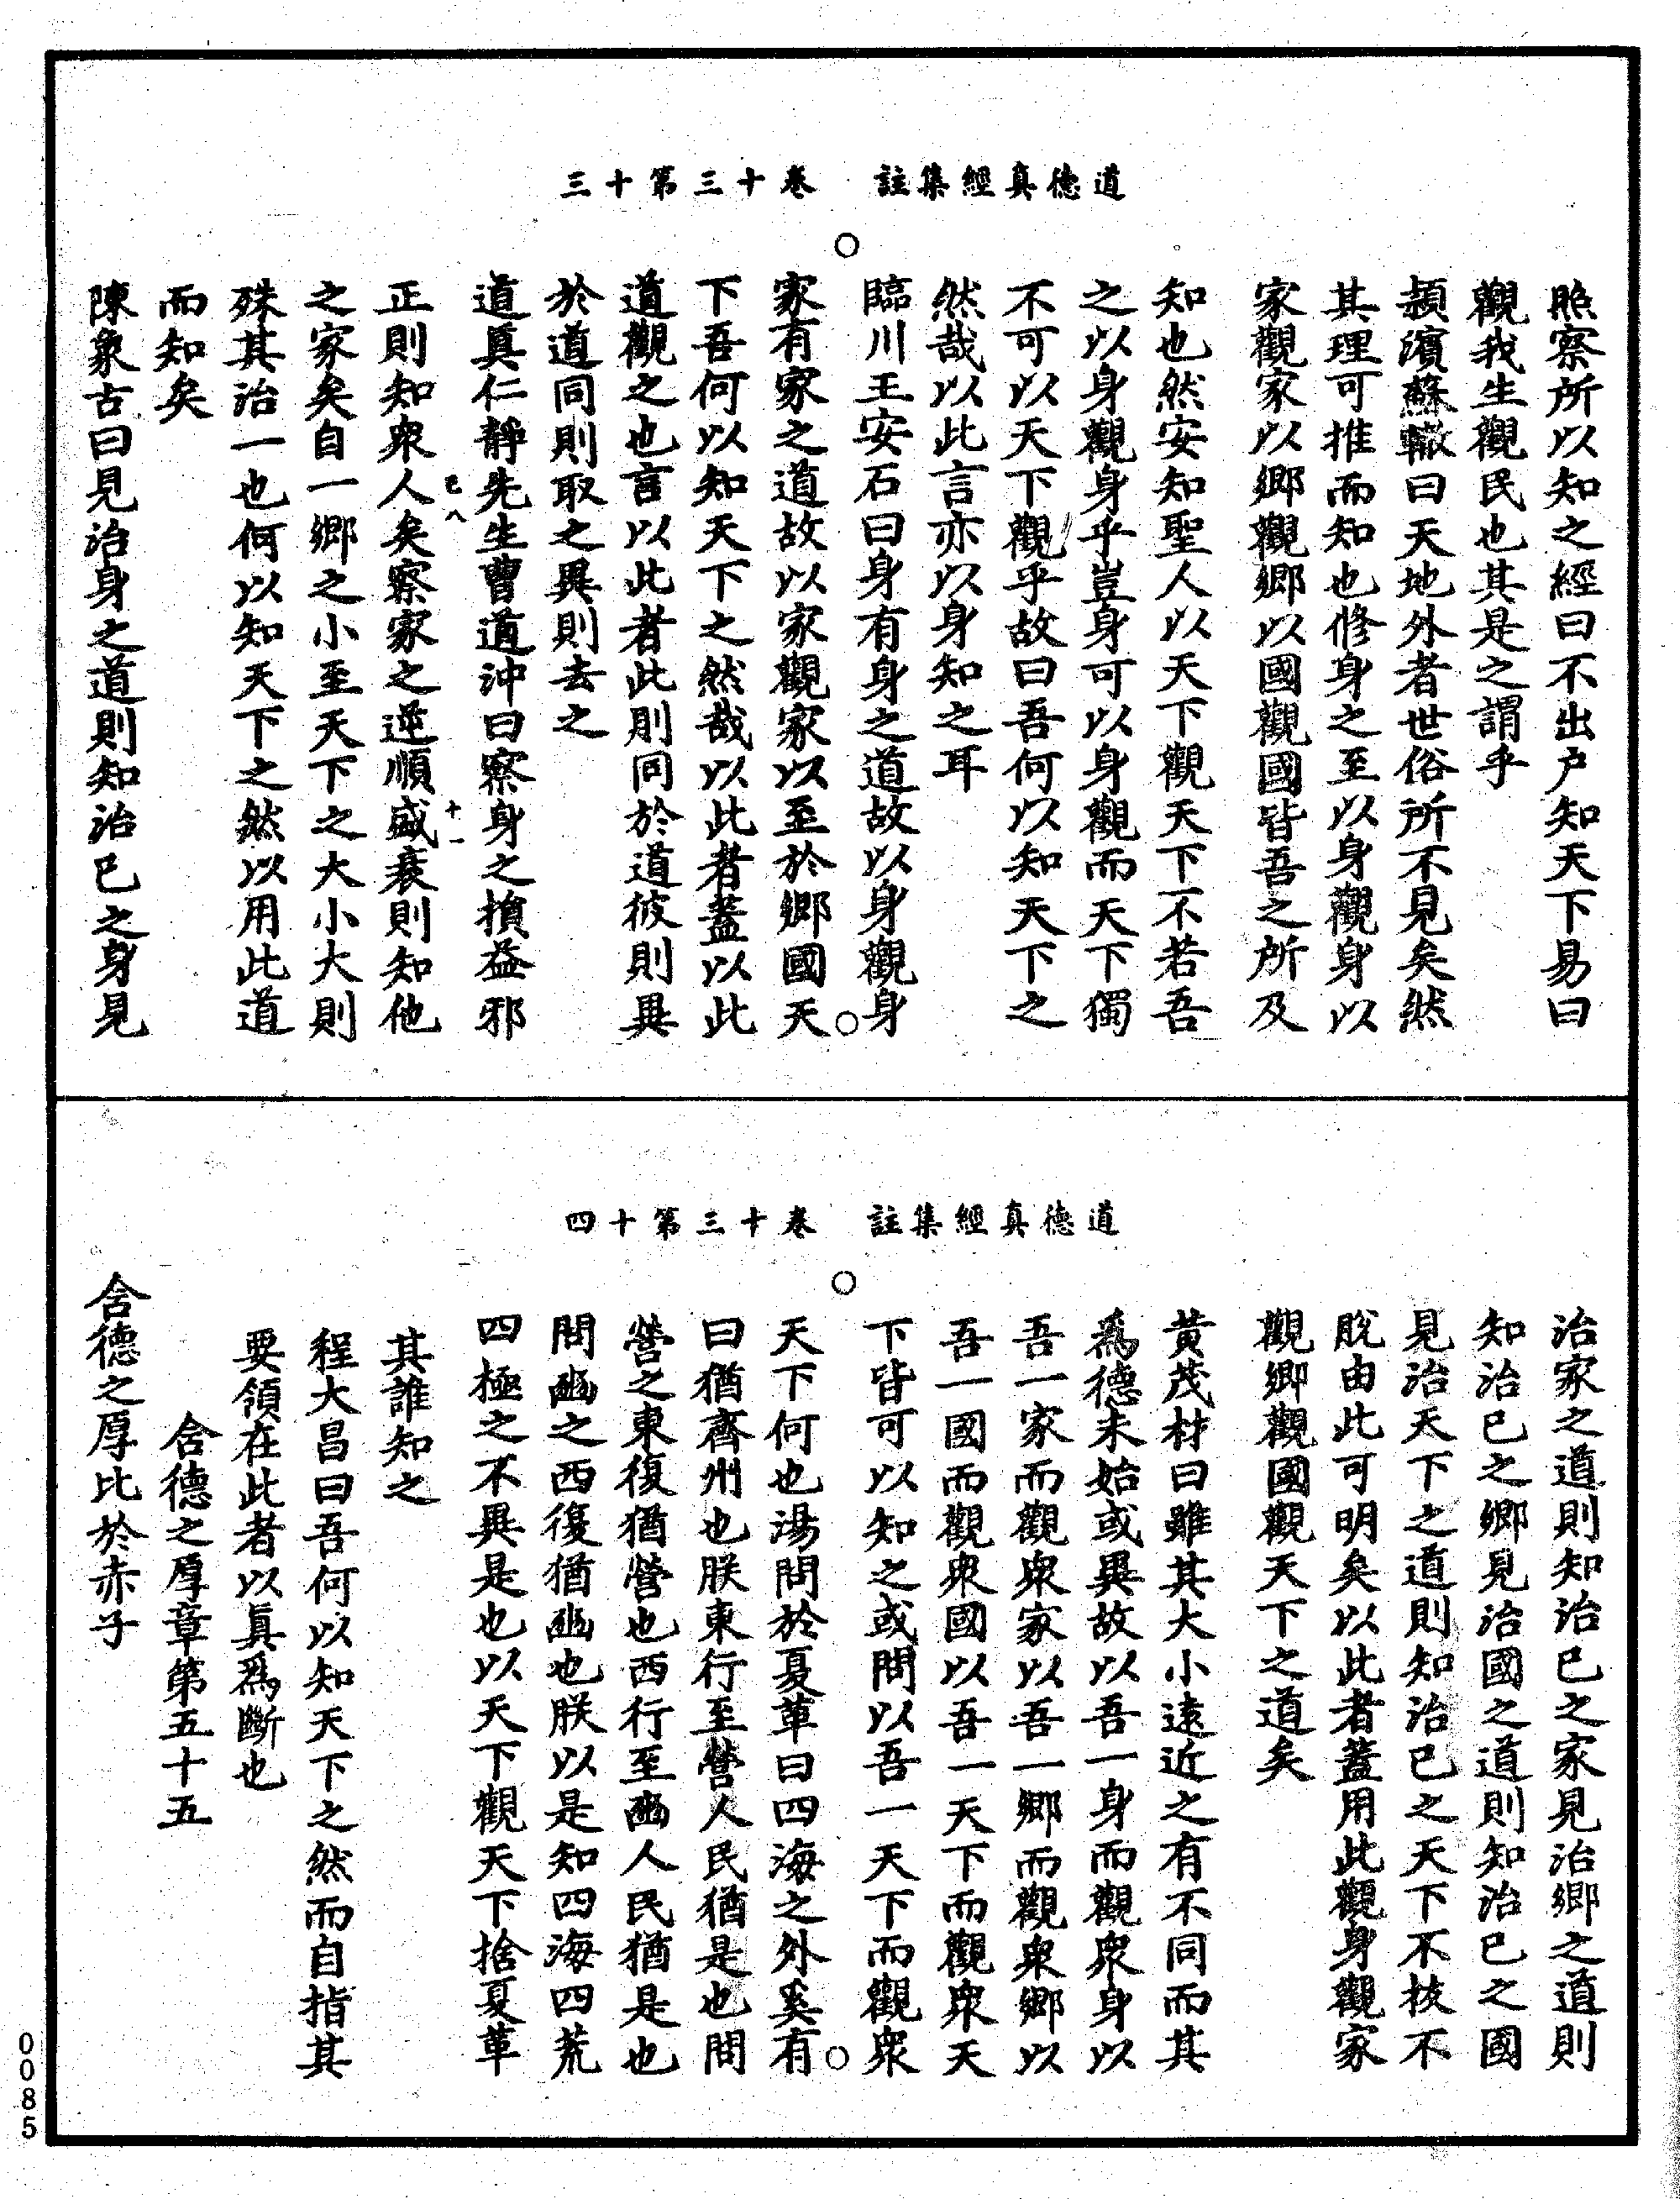 道德真經集註　卷十三第十三
照察所以知之經曰不出戶知天下易曰
觀我生觀民也其是之謂乎
潁濱蘇轍曰天地外者世俗所不見矣然
其理可推而知也修身之至以身觀身以
家觀家以鄉觀鄉以國觀國皆吾之所及
知也然安知聖人以天下觀天下不若吾
之以身觀身乎豈身可以身觀而天下獨
不可以天下觀乎故曰吾何以知天下之
然哉以此言亦以身知之耳
臨川王安石曰身有身之道故以身觀身
家有家之道故以家觀家以至於鄉國天
下吾何以知天下之然哉以此者蓋以此
道觀之也言以此者此則同於道彼則異
於道同則取之異則去之
道真仁靜先生曹道沖曰察身之損益邪
己八　十一
正則知衆人矣察家之逆順盛衰則知他
之家矣自一鄉之小至天下之大小大則
殊其治一也何以知天下之然以用此道
而知矣
陳象古曰見治身之道則知治己之身見
道德真經集註　卷十三第十四
治家之道則知治己之家見治鄉之道則
知治己之鄉見治國之道則知治己之國
見治天下之道則知治己之天下不拔不
脫由此可明矣以此者蓋用此觀身觀家
觀鄉觀國觀天下之道矣
黃茂材曰雖其大小遠近之有不同而其
為德未始或異故以吾一身而觀衆身以
吾一家而觀衆家以吾一鄉而觀衆鄉以
吾一國而觀衆國以吾一天下而觀衆天
下皆可以知之或問以吾一天下而觀衆
天下何也湯問於夏革曰四海之外奚有
曰猶齊州也朕東行至營人民猶是也問
營之東復猶營也西行至豳人民猶是也
問豳之西復猶豳也朕以是知四海四荒
四極之不異是也以天下觀天下捨夏革
其誰知之
程大昌曰吾何以知天下之然而自指其
要領在此者以真為斷也
含德之厚章第五十五
含德之厚比於赤子
0085